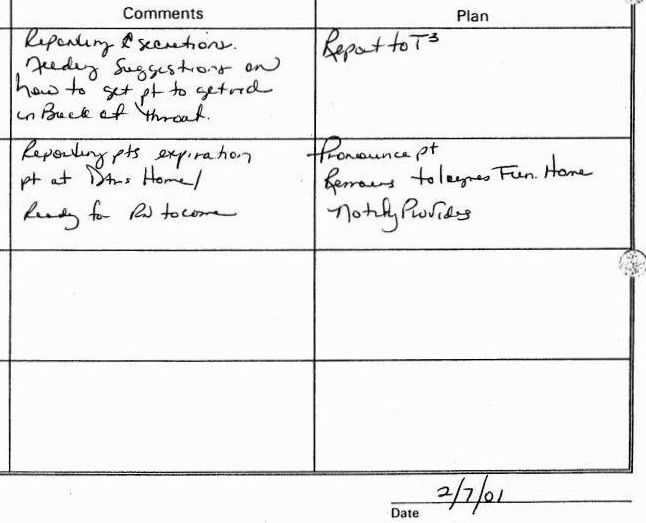 Comments
Plan
Reporting secretions.
Needing Suggestions on
how to get pt to get rid
in Back of throat.
Report to T3
Reporting pts expiration
pt at Dtrs Home/
Ready for RN to come
Pronounce pt
Remains to Fun. Home
Notify Provides
2/7/01
Date